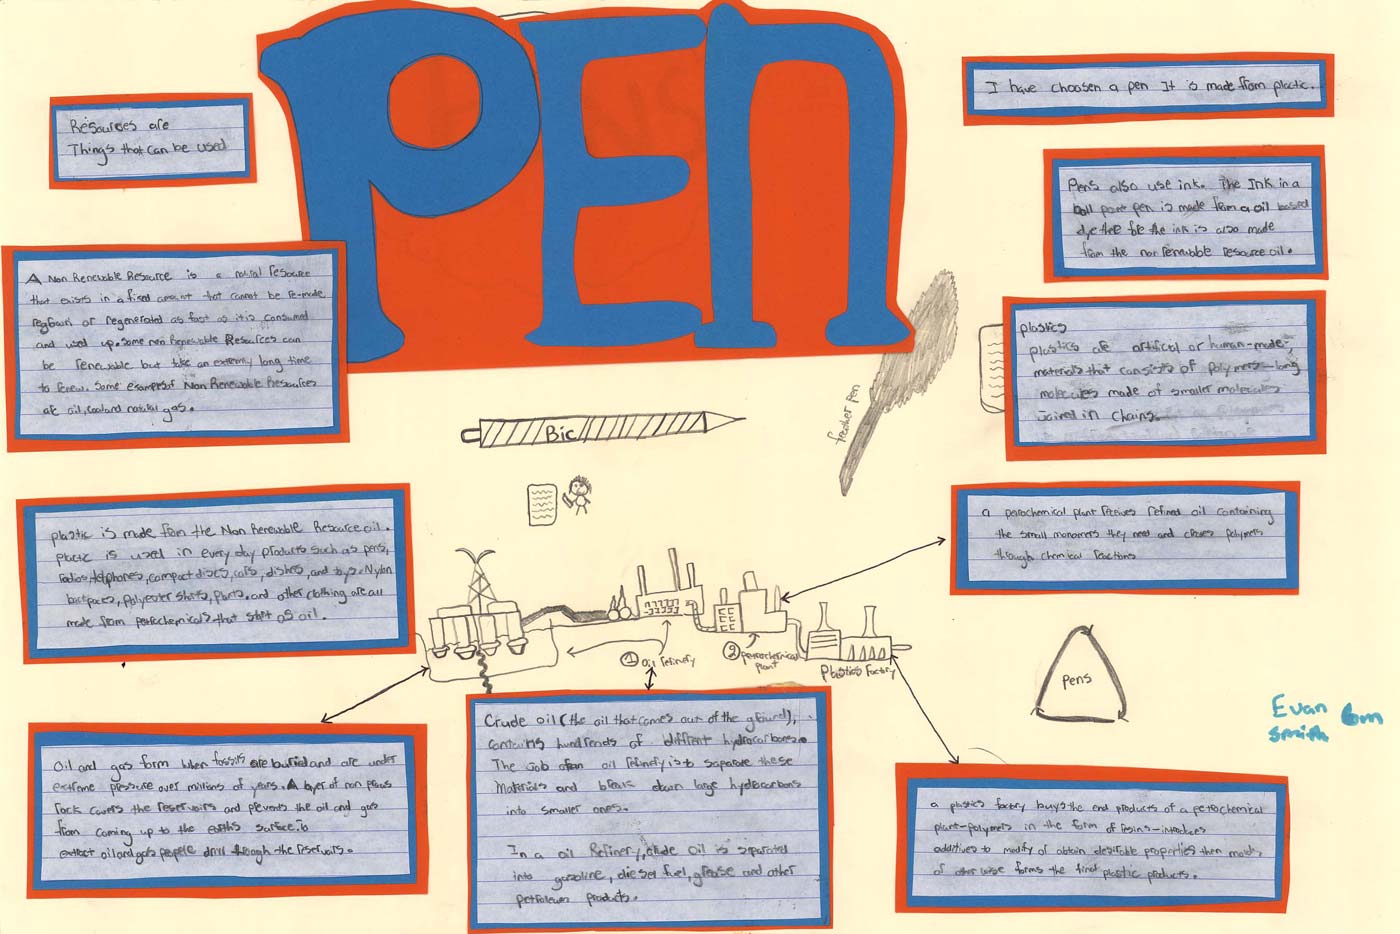 PEN
Resources are
Things that can be used
I have choosen a pen It is made from plactic.
Pens also use ink. The Ink in a
ball point pen is made from a oil based
dye the for the ink is also made
from the non renewable resource oil.
A Non Renewable Resource is a natural resource
that exists in a fixed amount that cannot be re-made
regrown or regenerated as fast as it is consumed
and used up. some non Renewable Resources can
be renewable but take an extremly long time
to renew. Some examples of Non Renewable Resources
are oil, coal and natural gas.
plastics
plastics are artifical or human-made
materials that consists of polymers-long
molecules made of smaller molecules
Joined in chains.
feather pen
Bic
plastic is made from the Non Renewable Resource oil.
plactic is used in every day products such as pens,
radios, telphones, compact discs, cars, dishes, and toys. Nylon
backpaces, polyester shirts, pants, and other clothing are all
made from petrochemicals that start as oil.
a petrochemical plant recives refined oil containing
the small monomers they need and creaes polymers
through chemical reactions
① Oil refinery
② petrochemical
plant
Plastics Factory
Pens
Evan
Smith
6m
Oil and gas form when fossils are buried and are under
extreme pressure over millions of years. A layer of non porus
rock covers the reservoirs and prevents the oil and gas
from coming up to the earths surface. To
extract oil and gas people drill through the reservoirs.
Crude oil (the oil that comes out of the ground),
contains hundreds of different hydrocarbons.
The Job of an oil refinery is to saparate these
Materials and break down large hydocarbons
into smaller ones.
In a oil Refinery, crude oil is separated
into gasoline, diesel fuel, grease and other
petroleum products.
a plastics factory buys the end products of a petrochemical
plant-polymers in the form of resins-introduces
additives to modify or obtain desirable properties then molds
or other wise forms the final plastic products.